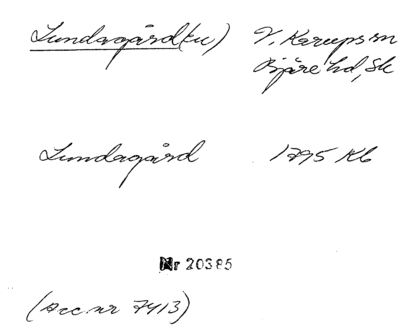 Lundagård (ku) V. Karups sn
Bjäre hd, Sk
Lundagård 1795 Kb
Nr 20385
(Acc. nr 7413)